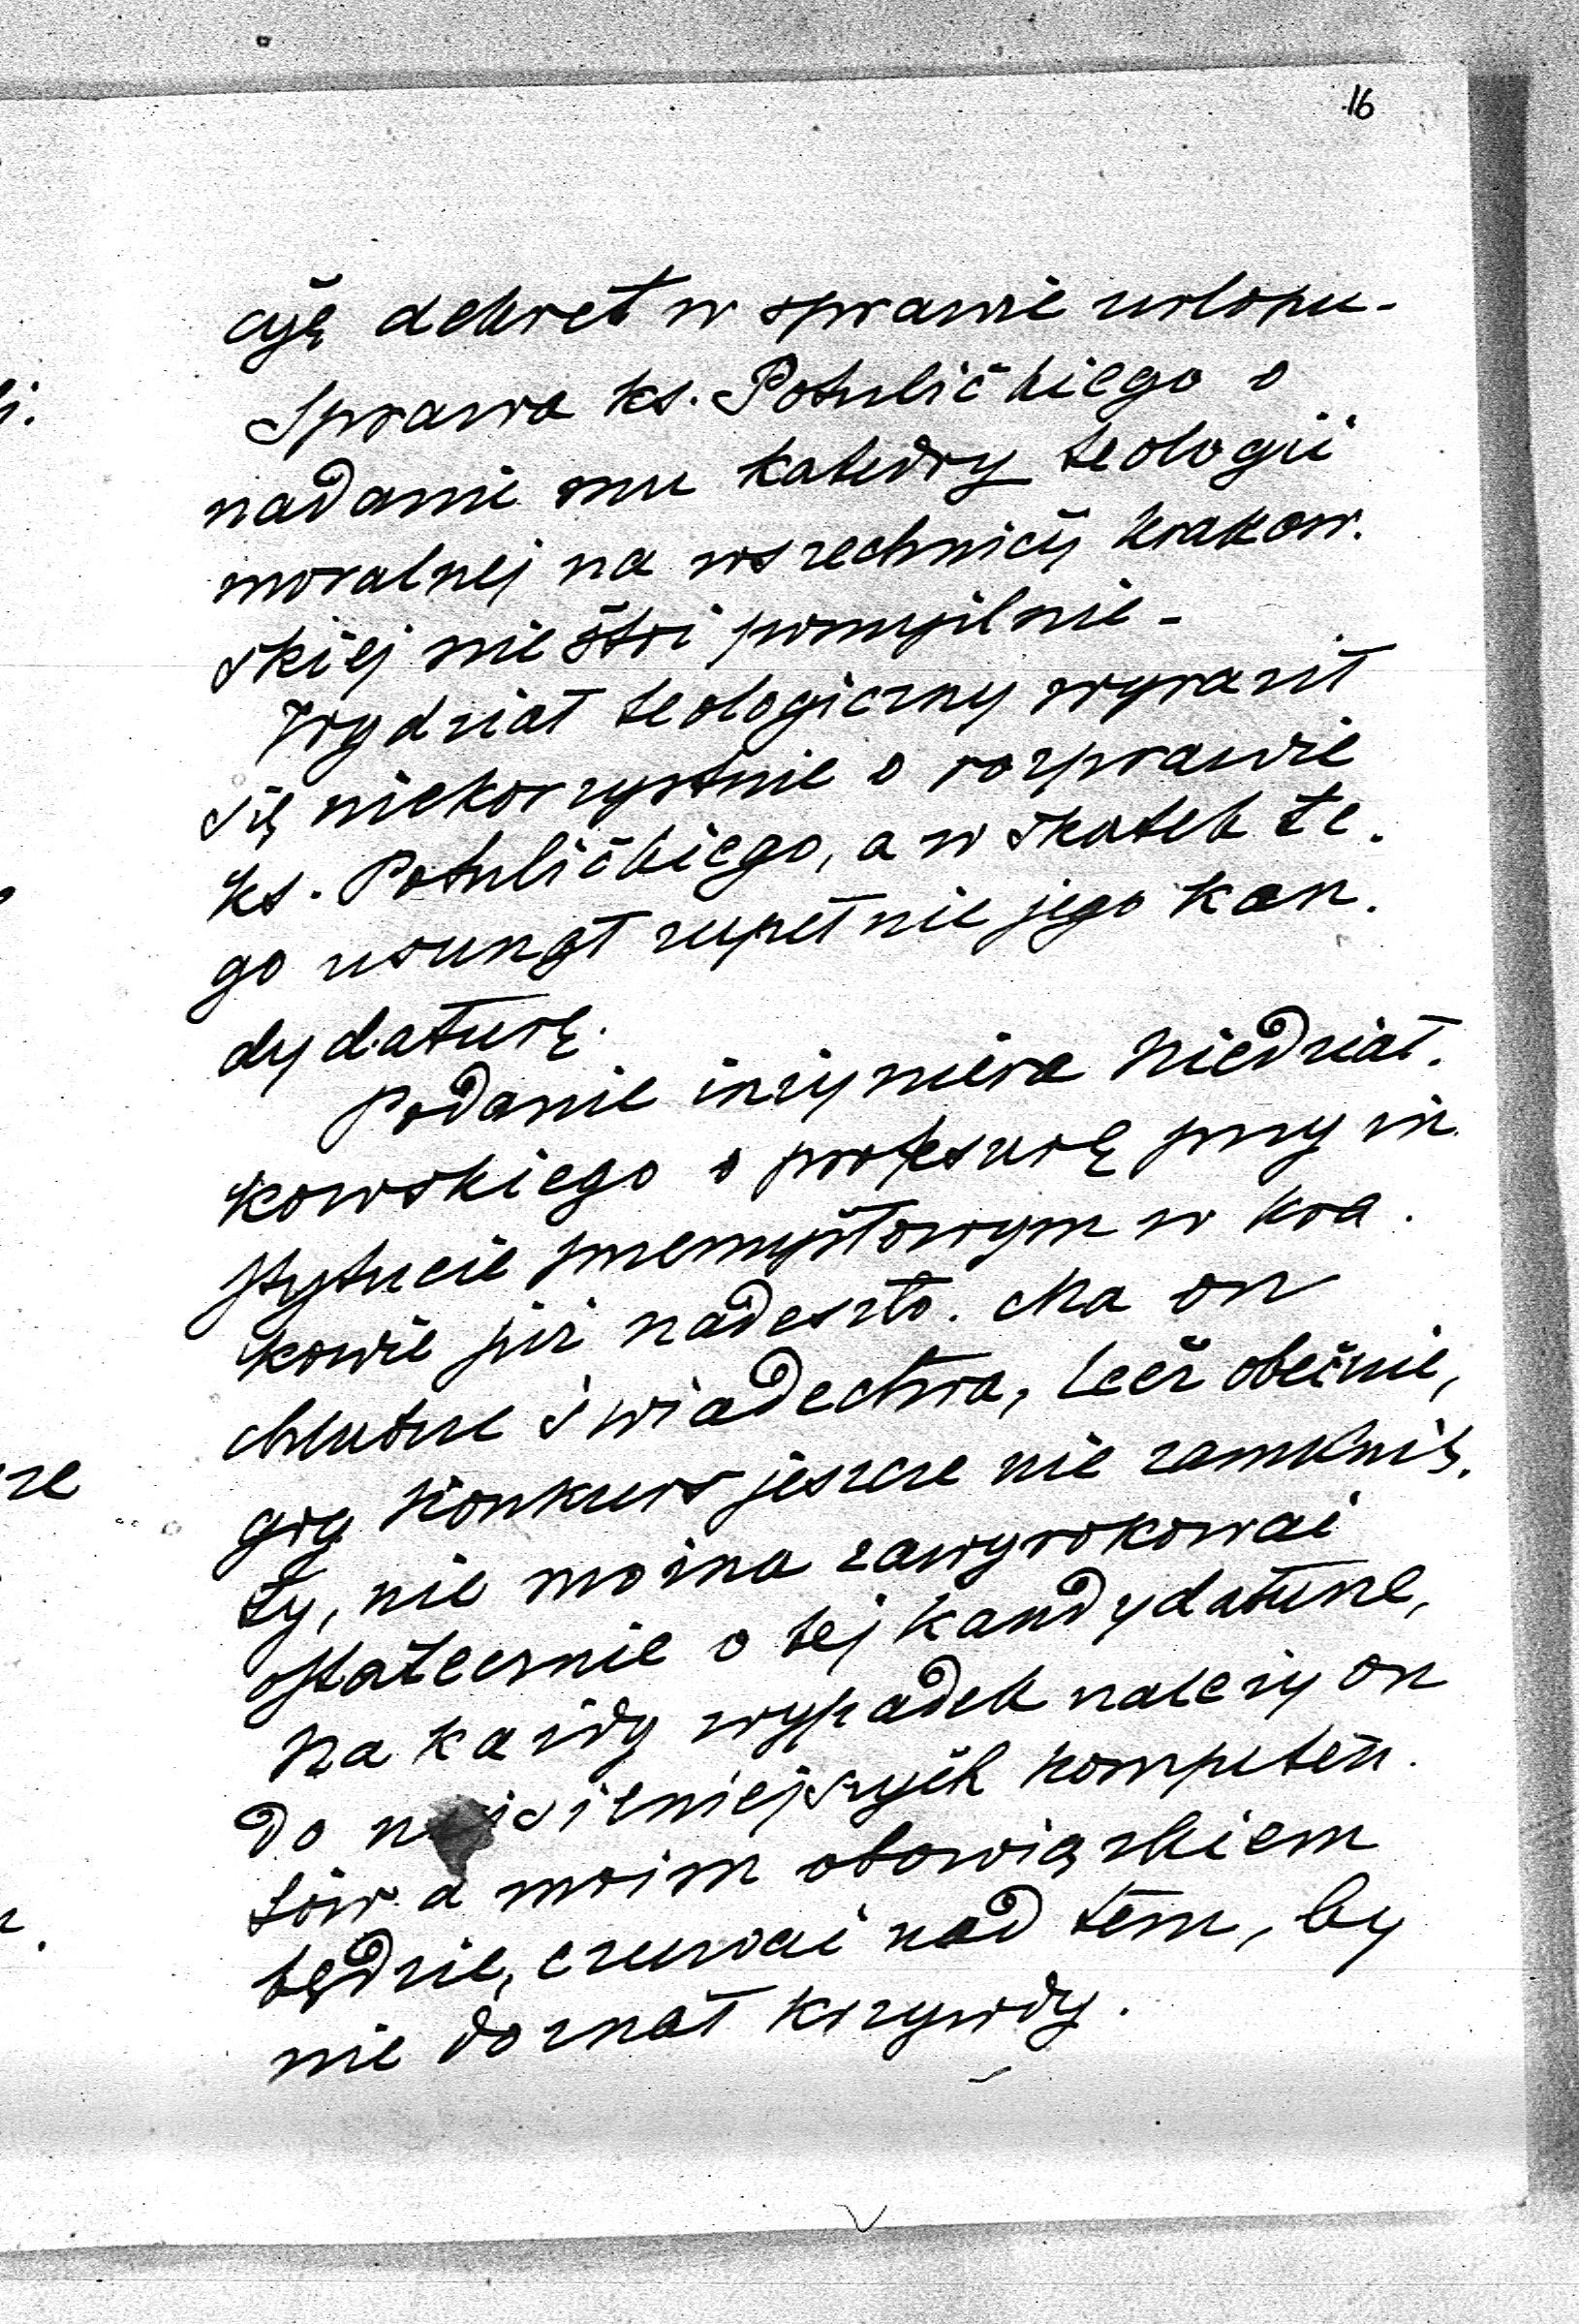 16
cyę dekret w sprawie urlopu-
Sprawa ks. Potulickiego o
nadanie mu katedry teologii
moralnej na wszechnicy krakow.
skiej nie stoi pomyślnie-
Wydział teologiczny wyraził
się niekorzystnie o rozprawie
ks. Potulickiego, a w skutek te.
go usunął zupełnie jego kan.
dydaturę.
Podanie inżyniera Niedział.
kowskiego o profesurę przy in
stytucie przemysłowym w Kra.
kowie już nadeszło. Ma on
chlubne świadectwa, lecz obecnie,
gdy konkurs jeszcze nie zamknię.
ty, nie można zawyrokować
ostatecznie o tej kandydaturze,
Na każdy wypadek należy on
do najsilniejszych kompeten.
tów a moim obowiązkiem
będzie, czuwać nad tem, by
nie doznał krzywdy.